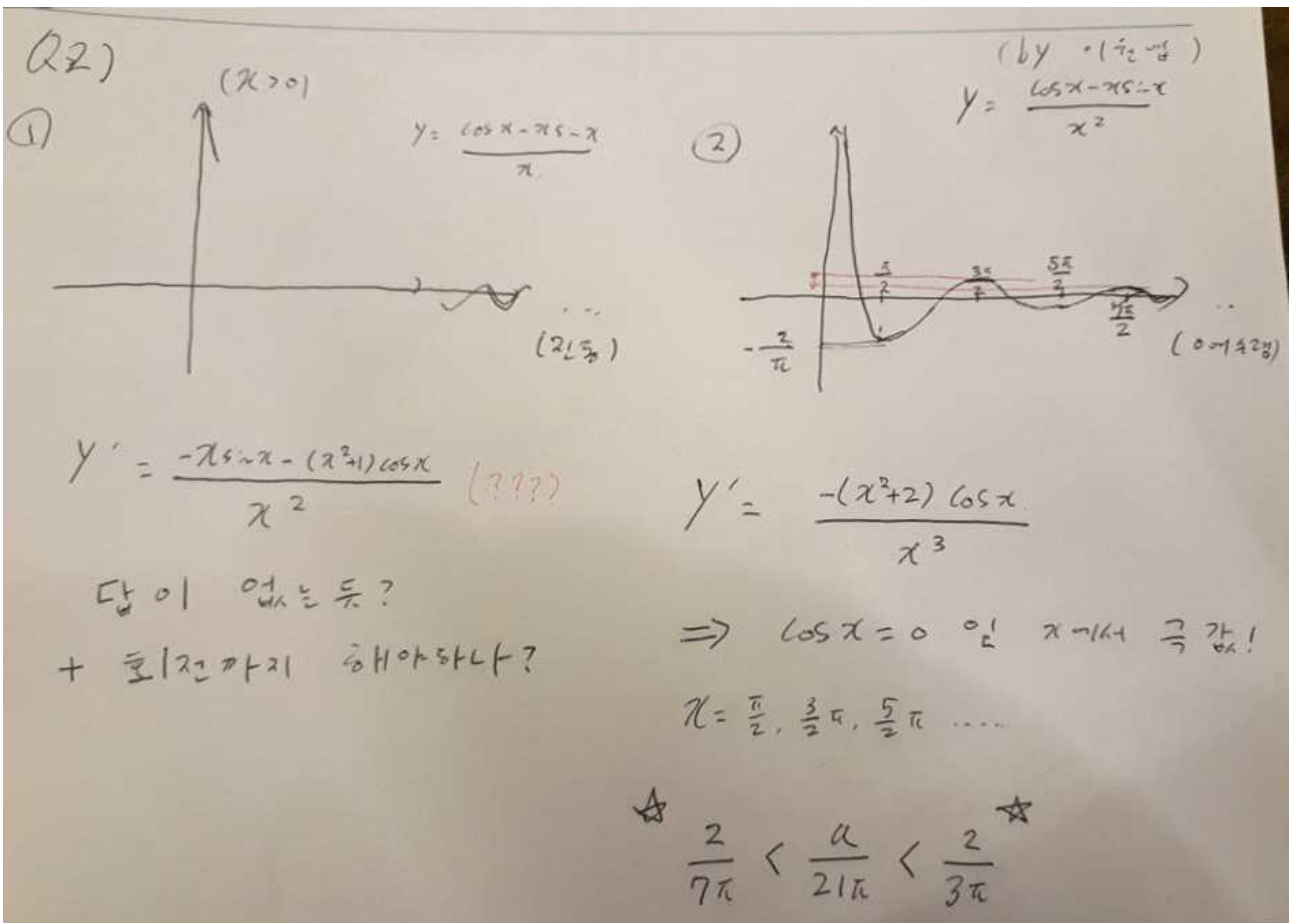 Q2)
①
(x>0)
y = (cos x - x sin x)/x
...
(진동)
y' = (-x sin x - (x²+1) cos x)/x² (???)
답이 없는듯?
+ 회전까지 해야하나?
(by
②
y = (cos x - x sin x)/x²
3π/2
5π/2
7π/2
-2/π
..
(0에 수렴)
y' = (-(x²+2) cos x)/x³
⇒ cos x = 0 인 x에서 극값!
x = π/2, 3/2 π, 5/2 π .....
☆ 2/7π < a/21π < 2/3π ☆